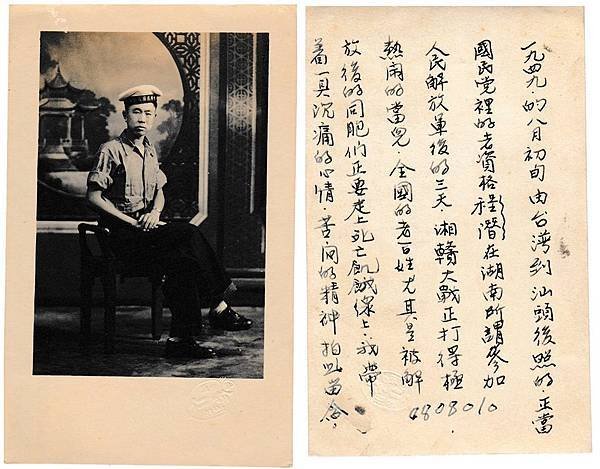 一九四九的八月初旬由台湾到汕頭後照的.正當
國民党裡的老資格程潛在湖南所謂參加
人民解放軍後的三天.湘贛大戰正打得極
熱鬧的當兒.全國的老百姓尤其是被解
放後的同胞们正要走上死亡飢餓線上.我帶
着一具沉痛的心情.苦闷的精神拍此留念.
4808010